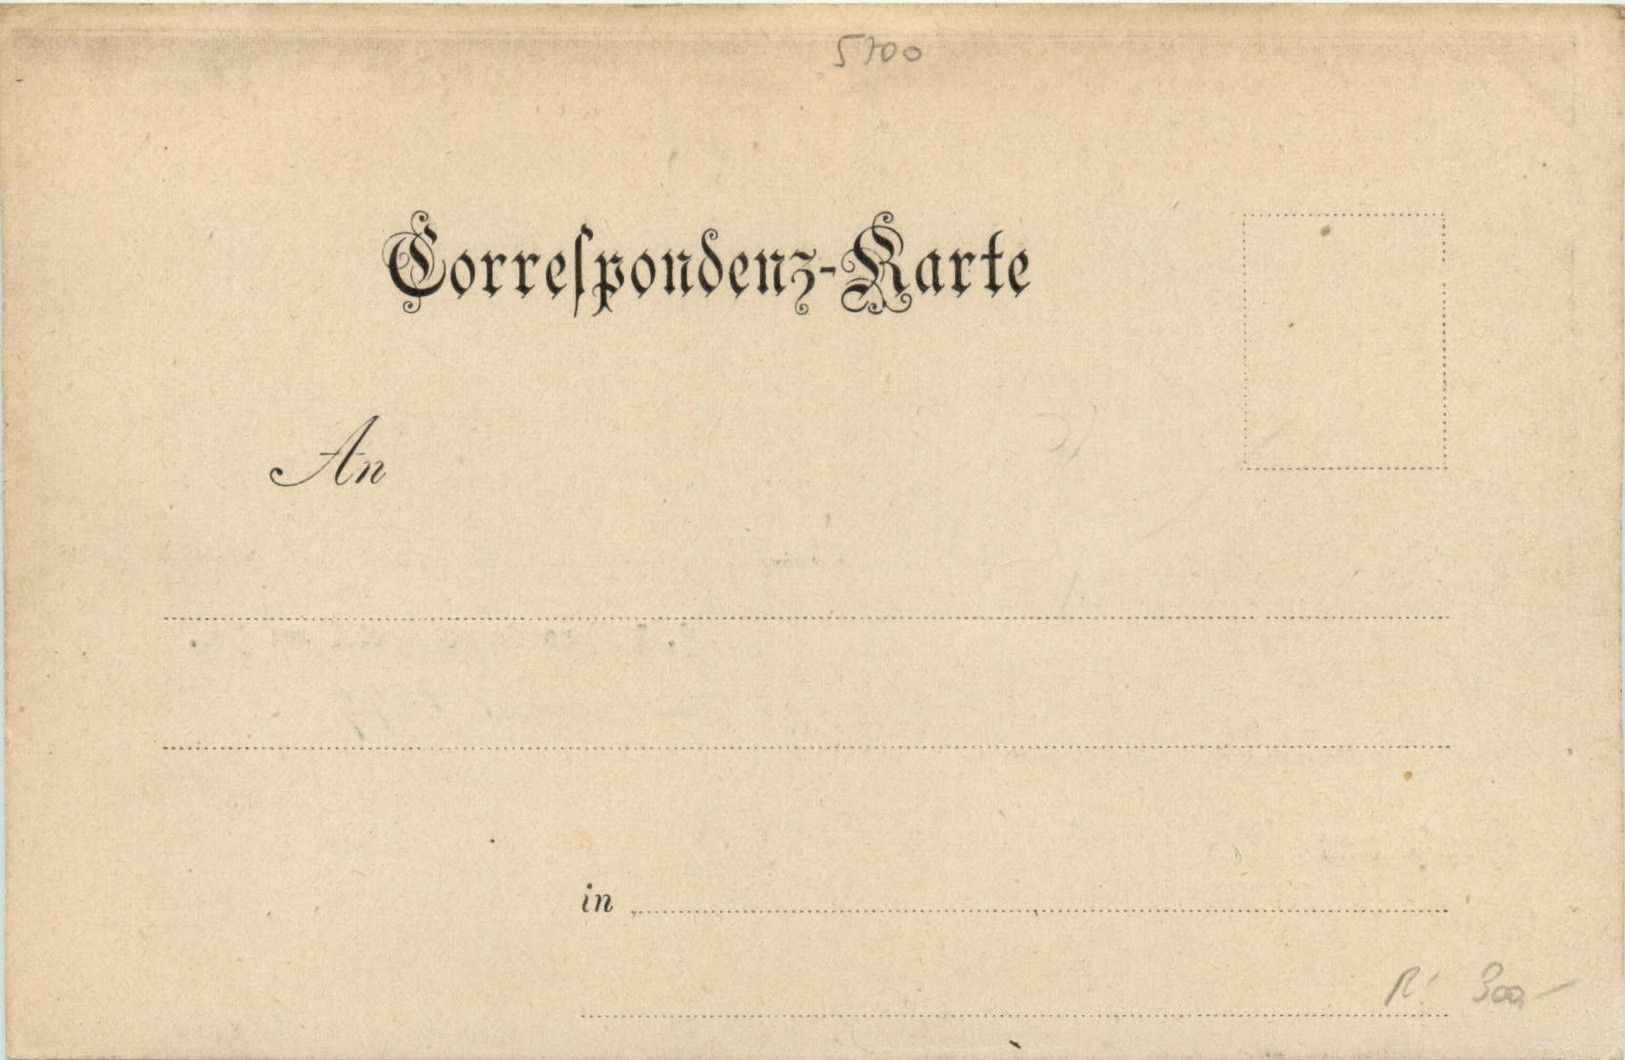 5700
Correſpondenz-Karte
An
in
R! 300,-